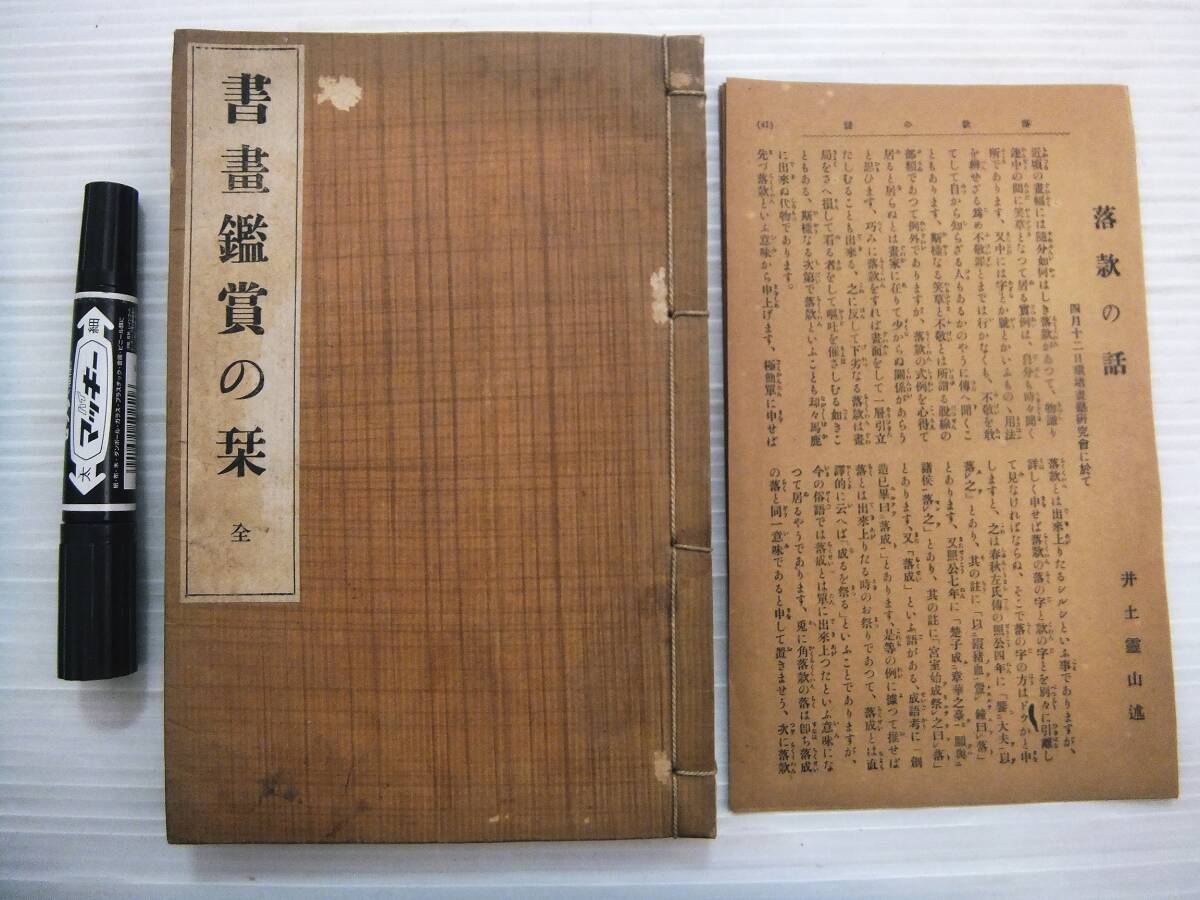 細
ハイ
マッキー
太
紙・布・木・ダンボール・ガラス・プラスチック・金属・ビニール類に
書畫鑑賞の栞
全
(41)
落款の話
落款の話
四月十二日
畫藝研究會に於て
井土靈山述
近頃の畫幅には隨分如何はしき落款があつて、物識り
連中の間に笑草となつて居る實例は、自分も時々聞く
所であります、又中には字とか號とかいふものゝ用法
を辨せざる爲め不敬罪とまでは行かなくも、不敬を敢
てして自から知らざる人もあるかのやうに傳へ聞くこ
ともあります、斯樣なる笑草と不敬とは所謂脫線の
部類であつて例外でありますが、落款の式例を心得て
居ると居らぬとは畫家に在りて少からぬ關係があらう
と思ひます、巧みに落款をすれば畫面をして一層引立
たしむることも出來る、之に反して下劣なる落款は畫
局をさへ損して看る者をして嘔吐を催さしむる如きこ
ともある、斯樣なる次第で落款といふことも却々馬鹿
に出來ぬ代物であります。
先づ落款といふ意味から申上げます、極簡單に申せば
落款とは出來上りたるシルシといふ事でありますが、
詳しく申せば落款の落の字と款の字とを別々に引離し
て見なければならぬ、そこで落の字の方はドウかと申
しますと、之は春秋左氏傳の昭公四年に「饗大夫以
落之」とあり、其の註に「以豭猪血釁鐘曰落」
とあります、又昭公七年に「楚子成章華之臺願與
諸侯落之」とあり、其の註に「宮室始成祭之曰落」
とあります、又「落成」といふ語がある、成語考に「創
造已畢曰落成」とあります、是等の例に據つて推せば
落とは出來上りたる時のお祭りであつて、落成とは直
譯的に云へば「成るを祭る」といふことでありますが、
今の俗語では落成とは單に出來上つたといふ意味にな
つて居るやうであります、兎に角落款の落は卽ち落成
の落と同一意味であると申して置きませう、次に落款